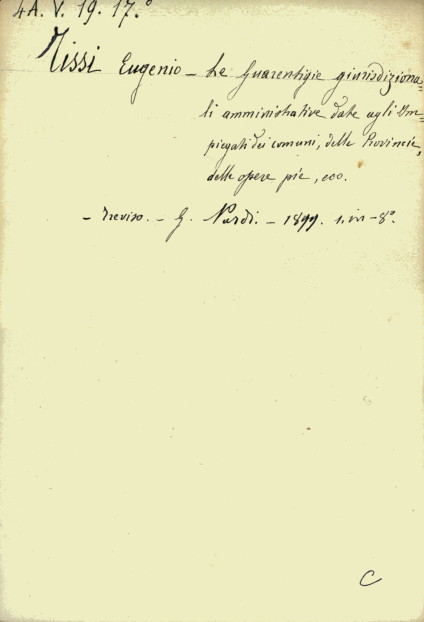 4A. V. 19. 17.°
Tissi Eugenio — Le Guarentigie giurisdiziona=
li amministrative date agli Im=
piegati dei comuni, delle Provincie,
delle opere pie, ecc.
— Treviso. — G. Nardi. — 1899. 1. in — 8°.
C